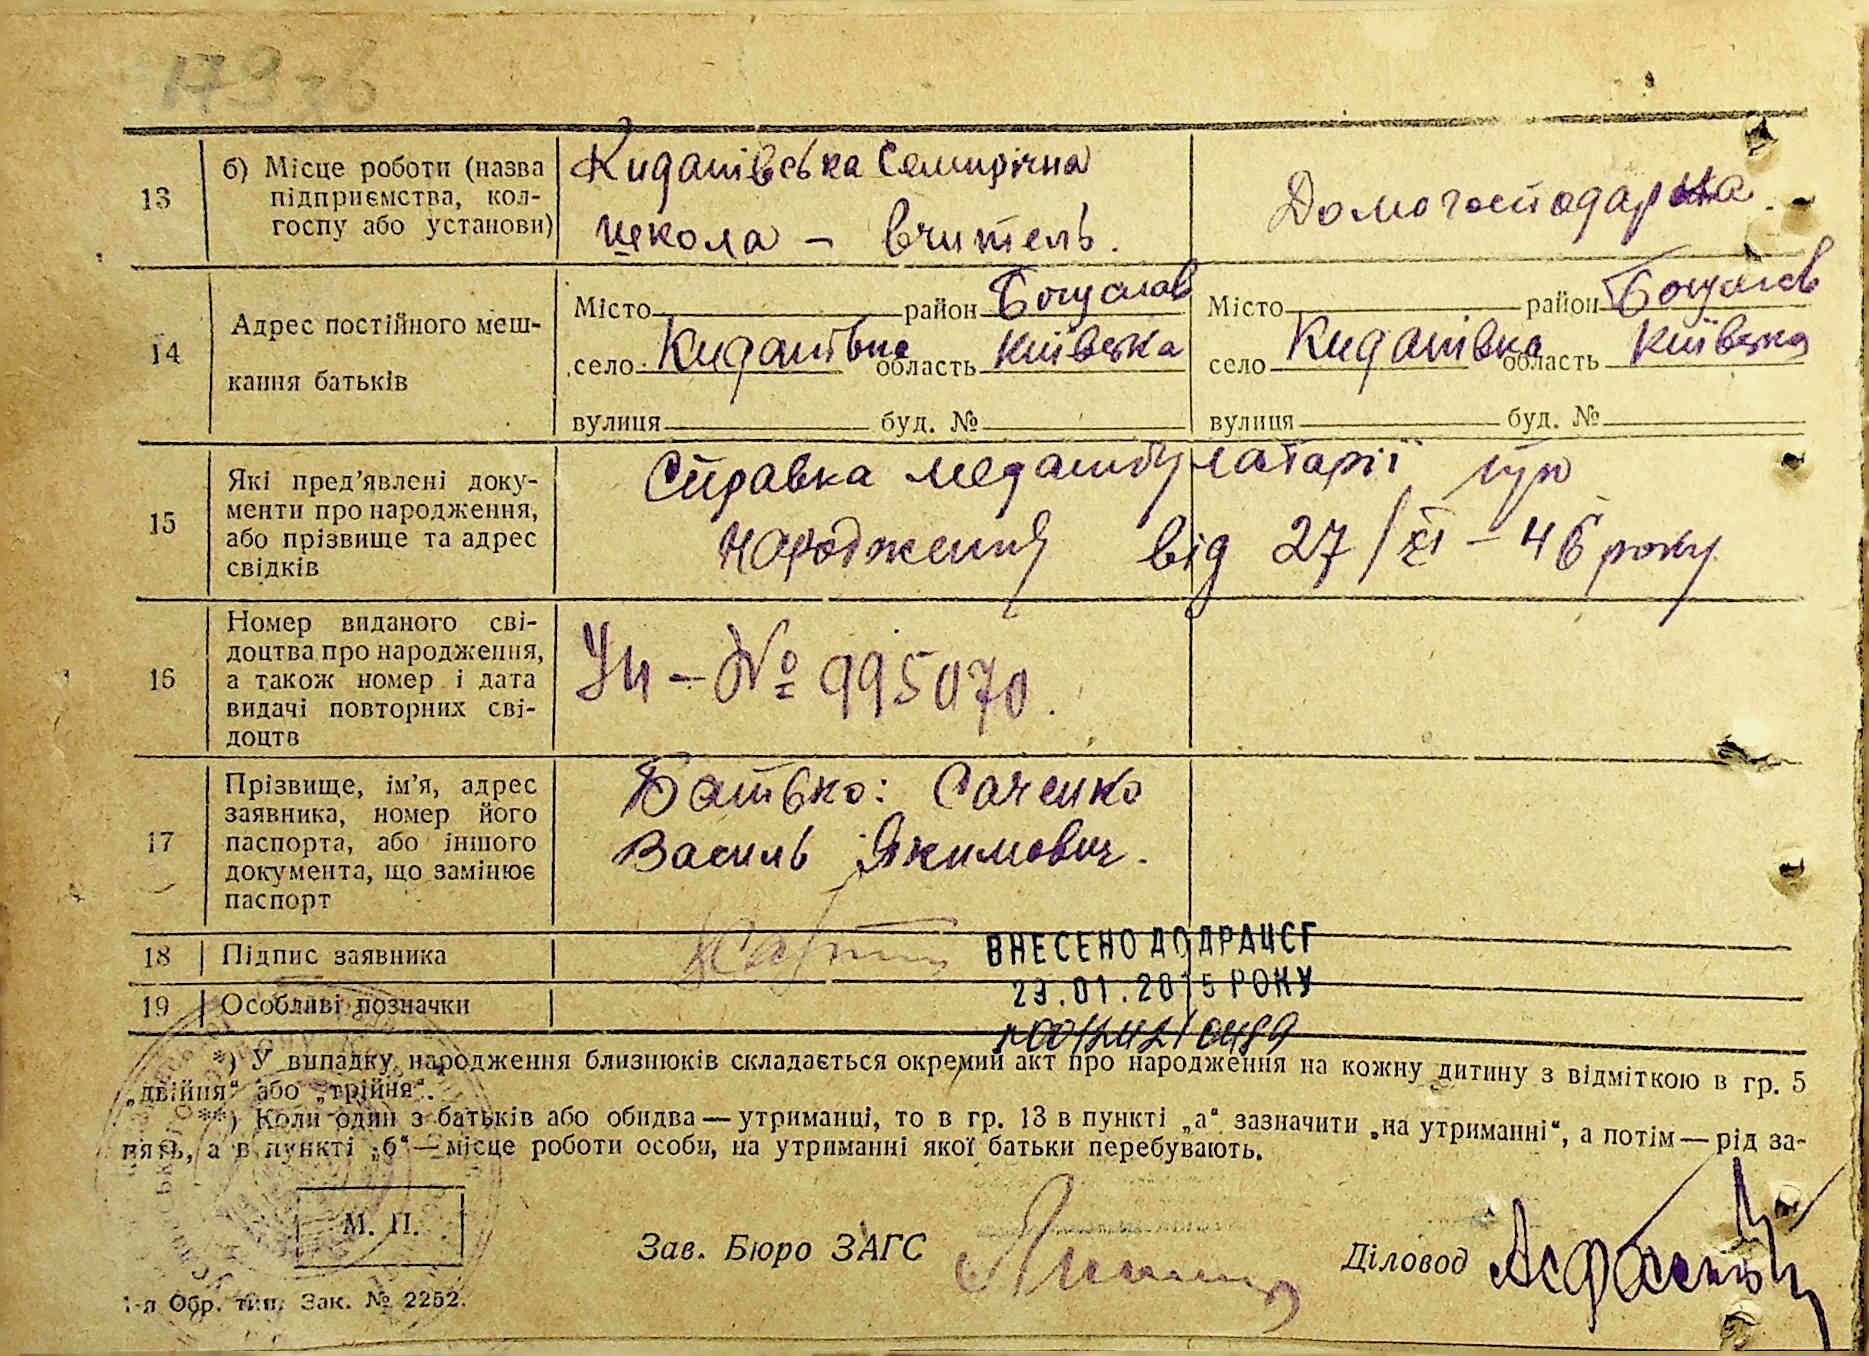 179 зв
13
б) Місце роботи (назва
підприємства, кол-
госпу або установи)
Киданівська Семирічна
школа – вчитель.
Домогосподарка.
14
Адрес постійного меш-
кання батьків
Місто район Богуслав
село Киданівка область Київська
вулиця буд. №
Місто район Богуслав
село Киданівка область Київська
вулиця буд. №
15
Які пред'явлені доку-
менти про народження,
або прізвище та адрес
свідків
Справка медамбулаторії про
народження від 27/XI – 46 року
16
Номер виданого сві-
доцтва про народження,
а також номер і дата
видачі повторних сві-
доцтв
УЧ – № 995070.
17
Прізвище, ім'я, адрес
заявника, номер його
паспорта, або іншого
документа, що замінює
паспорт
Батько: Саченко
Василь Якимович.
18
Підпис заявника
19
Особливі позначки
ВНЕСЕНО ДО ДРАЦСГ
23.01.2015 РОКУ
*) У випадку народження близнюків складається окремий акт про народження на кожну дитину з відміткою в гр. 5
„двійня" або „трійня".
**) Коли один з батьків або обидва — утриманці, то в гр. 13 в пункті „а" зазначити „на утриманні", а потім — рід за-
нять, а в пункті „б" — місце роботи особи, на утриманні якої батьки перебувають.
М. П.
Зав. Бюро ЗАГС
Діловод
1-я Обр. тип. Зак. № 2252.